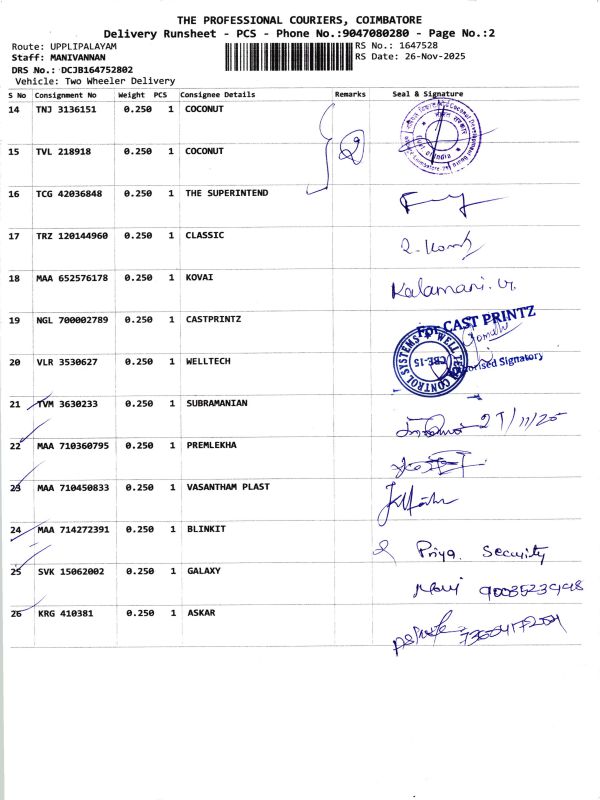 THE PROFESSIONAL COURIERS, COIMBATORE
Delivery Runsheet - PCS - Phone No.:9047080280 - Page No.:2
Route: UPPLIPALAYAM
RS No.: 1647528
Staff: MANIVANNAN
RS Date: 26-Nov-2025
DRS No.: DCJB164752802
Vehicle: Two Wheeler Delivery
S No Consignment No Weight PCS Consignee Details Remarks Seal & Signature
14 TNJ 3136151 0.250 1 COCONUT
15 TVL 218918 0.250 1 COCONUT
16 TCG 42036848 0.250 1 THE SUPERINTEND
17 TRZ 120144960 0.250 1 CLASSIC
18 MAA 652576178 0.250 1 KOVAI Kalamani. G.
19 NGL 700002789 0.250 1 CASTPRINTZ For CAST PRINTZ
20 VLR 3530627 0.250 1 WELLTECH WELL TECH CONTROL SYSTEMS CBE-15 Authorised Signatory
21 TVM 3630233 0.250 1 SUBRAMANIAN 27/11/25
22 MAA 710360795 0.250 1 PREMLEKHA
23 MAA 710450833 0.250 1 VASANTHAM PLAST
24 MAA 714272391 0.250 1 BLINKIT Priya. Security
25 SVK 15062002 0.250 1 GALAXY
26 KRG 410381 0.250 1 ASKAR